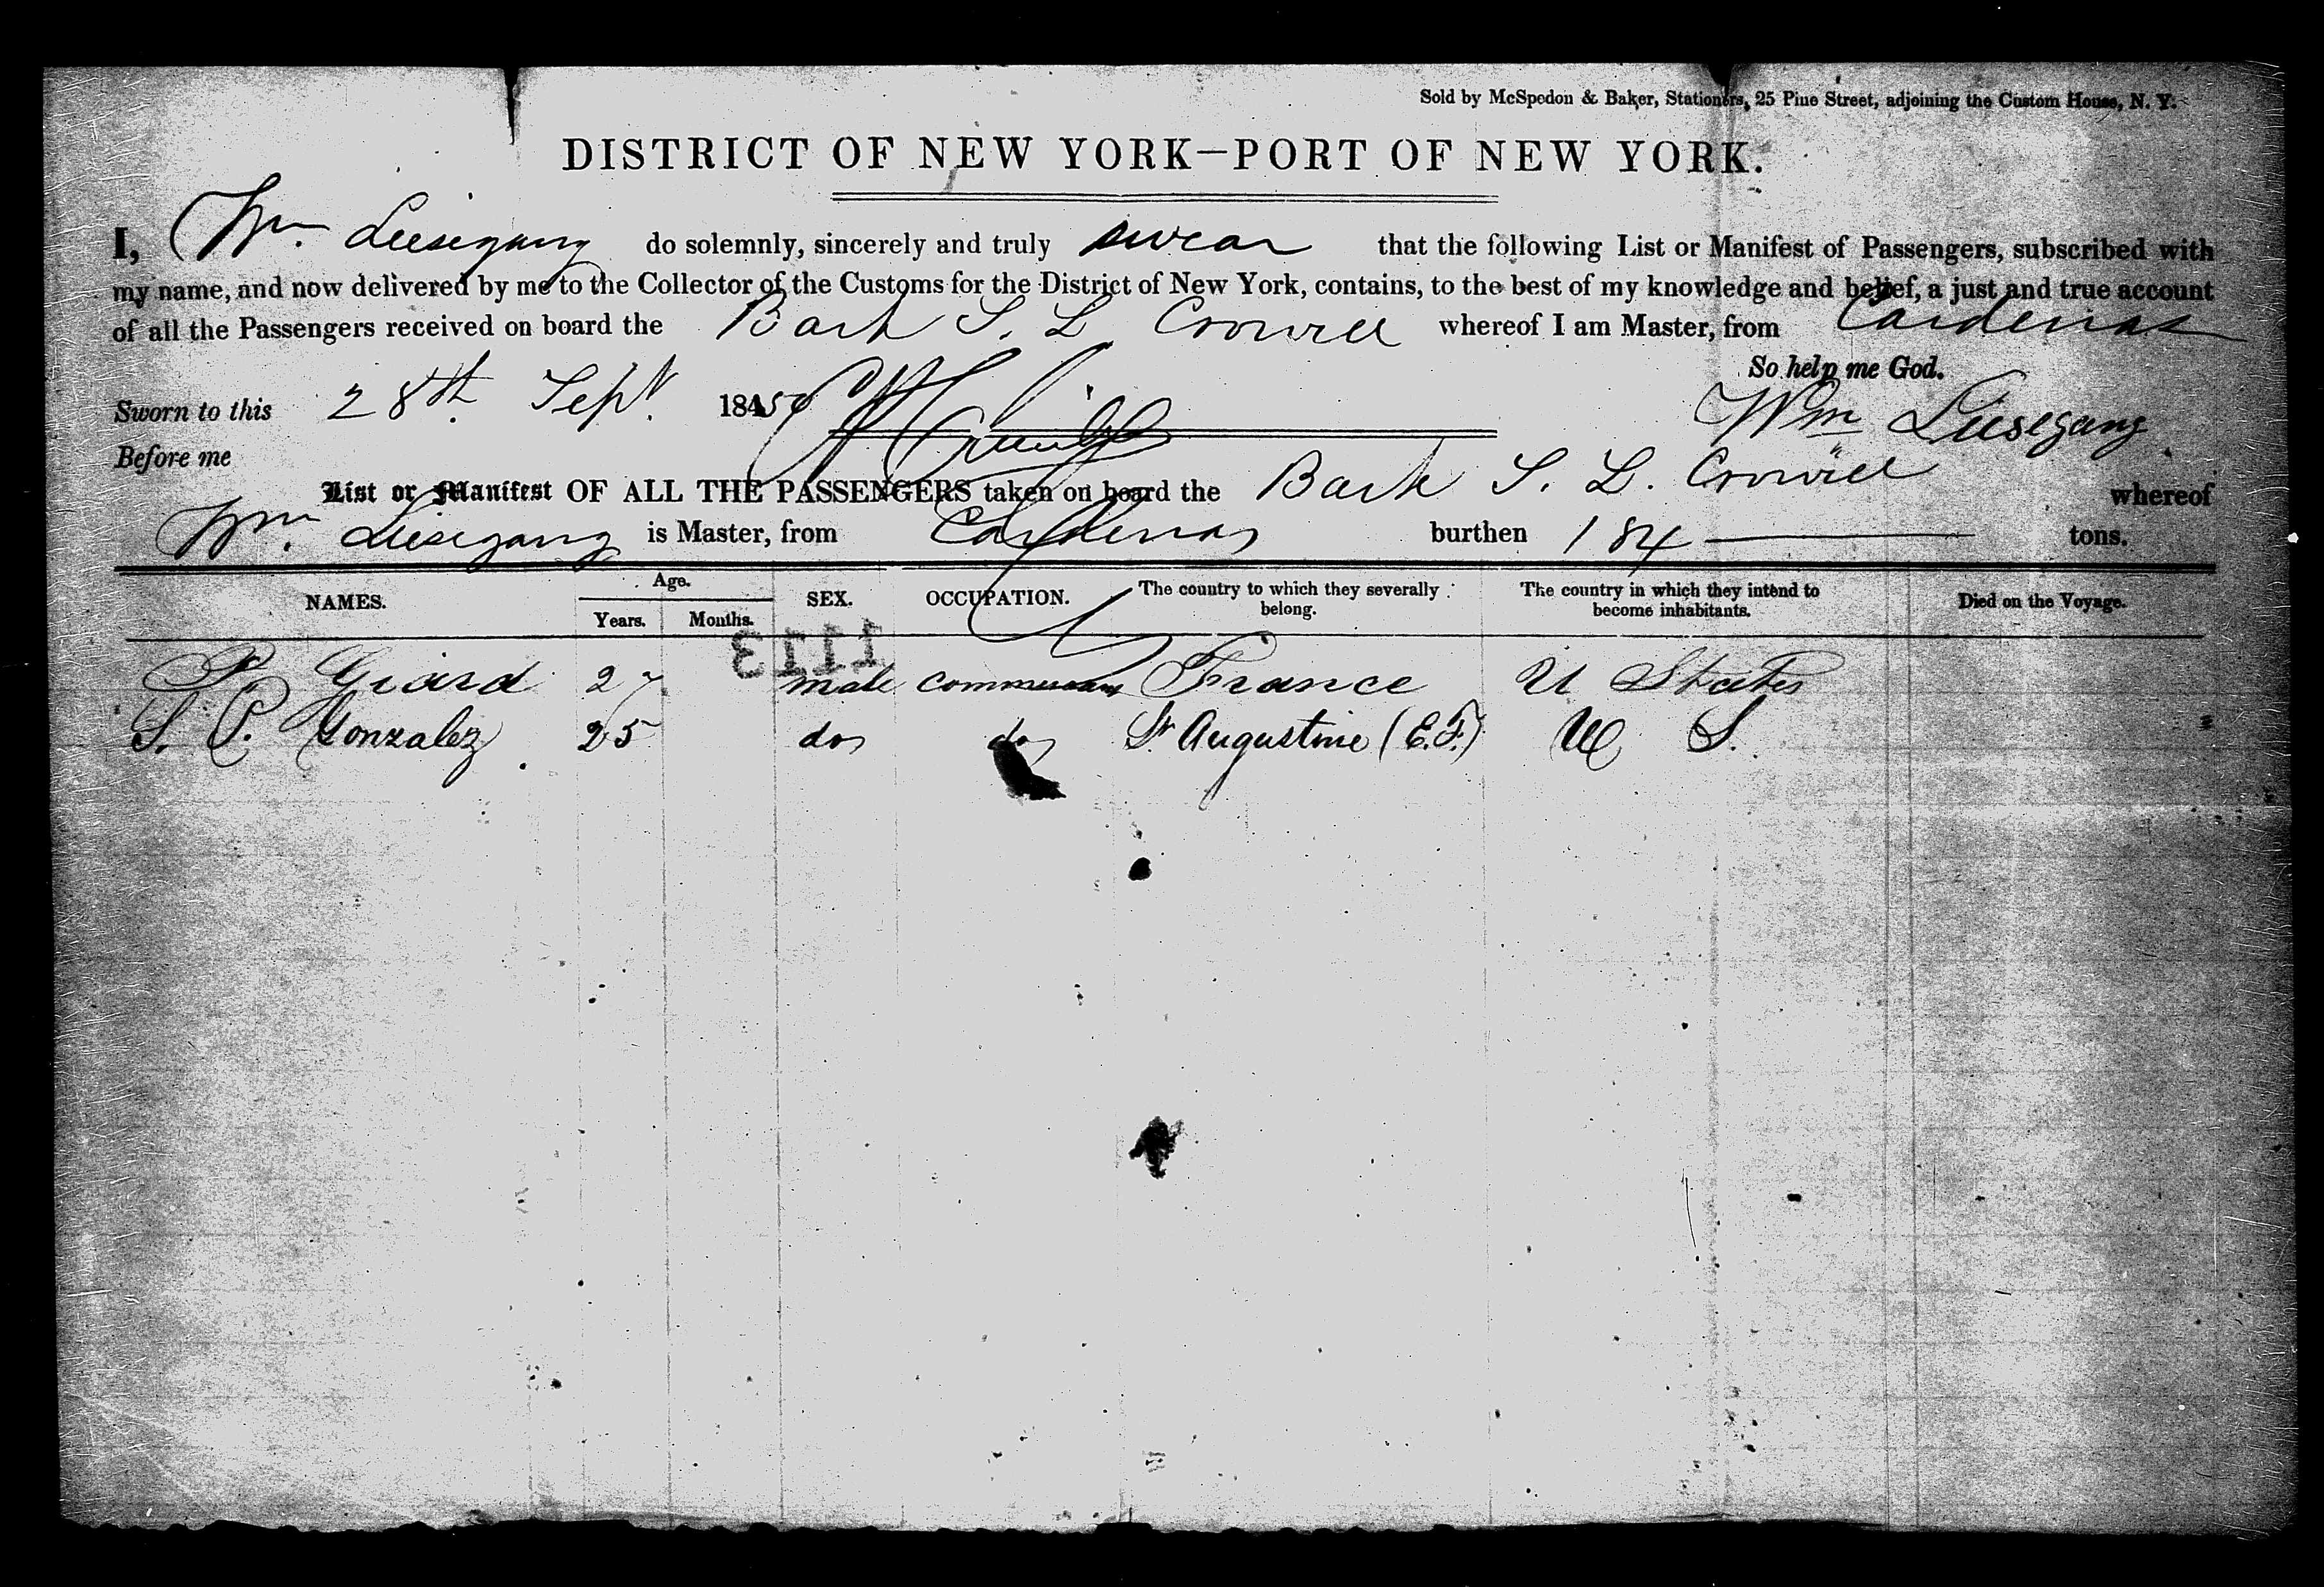 Sold by McSpedon & Baker, Stationers, 25 Pine Street, adjoining the Custom House, N. Y.
DISTRICT OF NEW YORK—PORT OF NEW YORK.
I, Wm. Liesegang do solemnly, sincerely and truly swear that the following List or Manifest of Passengers, subscribed with
my name, and now delivered by me to the Collector of the Customs for the District of New York, contains, to the best of my knowledge and belief, a just and true account
of all the Passengers received on board the Bark S. L Crowell whereof I am Master, from Cardenas
So help me God.
Sworn to this 28th Sept 1850 Wm Liesegang
Before me
List or Manifest OF ALL THE PASSENGERS taken on board the Bark S. L. Crowell whereof
Wm. Liesegang is Master, from Cardenas burthen 184 tons.
NAMES. Age. Years. Months. SEX. OCCUPATION. The country to which they severally belong. The country in which they intend to become inhabitants. Died on the Voyage.
1113
P Giard 27 male France U States
S. P. Gonzalez 25 do do St Augustine (E.F.) U S.